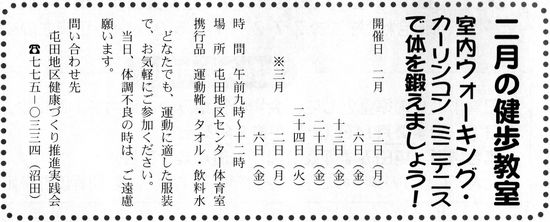 二月の健歩教室
室内ウォーキング・
カーリンコン・ミニテニス
で体を鍛えましょう！
開催日　二月　二日（月）
六日（金）
十三日（金）
二十日（金）
二十四日（火）
※三月　二日（月）
六日（金）
時　間　午前九時～十二時
場　所　屯田地区センター体育室
携行品　運動靴・タオル・飲料水
どなたでも、運動に適した服装
で、お気軽にご参加ください。
当日、体調不良の時は、ご遠慮
願います。
問い合わせ先
屯田地区健康づくり推進実践会
☎七七五－〇三三四（沼田）